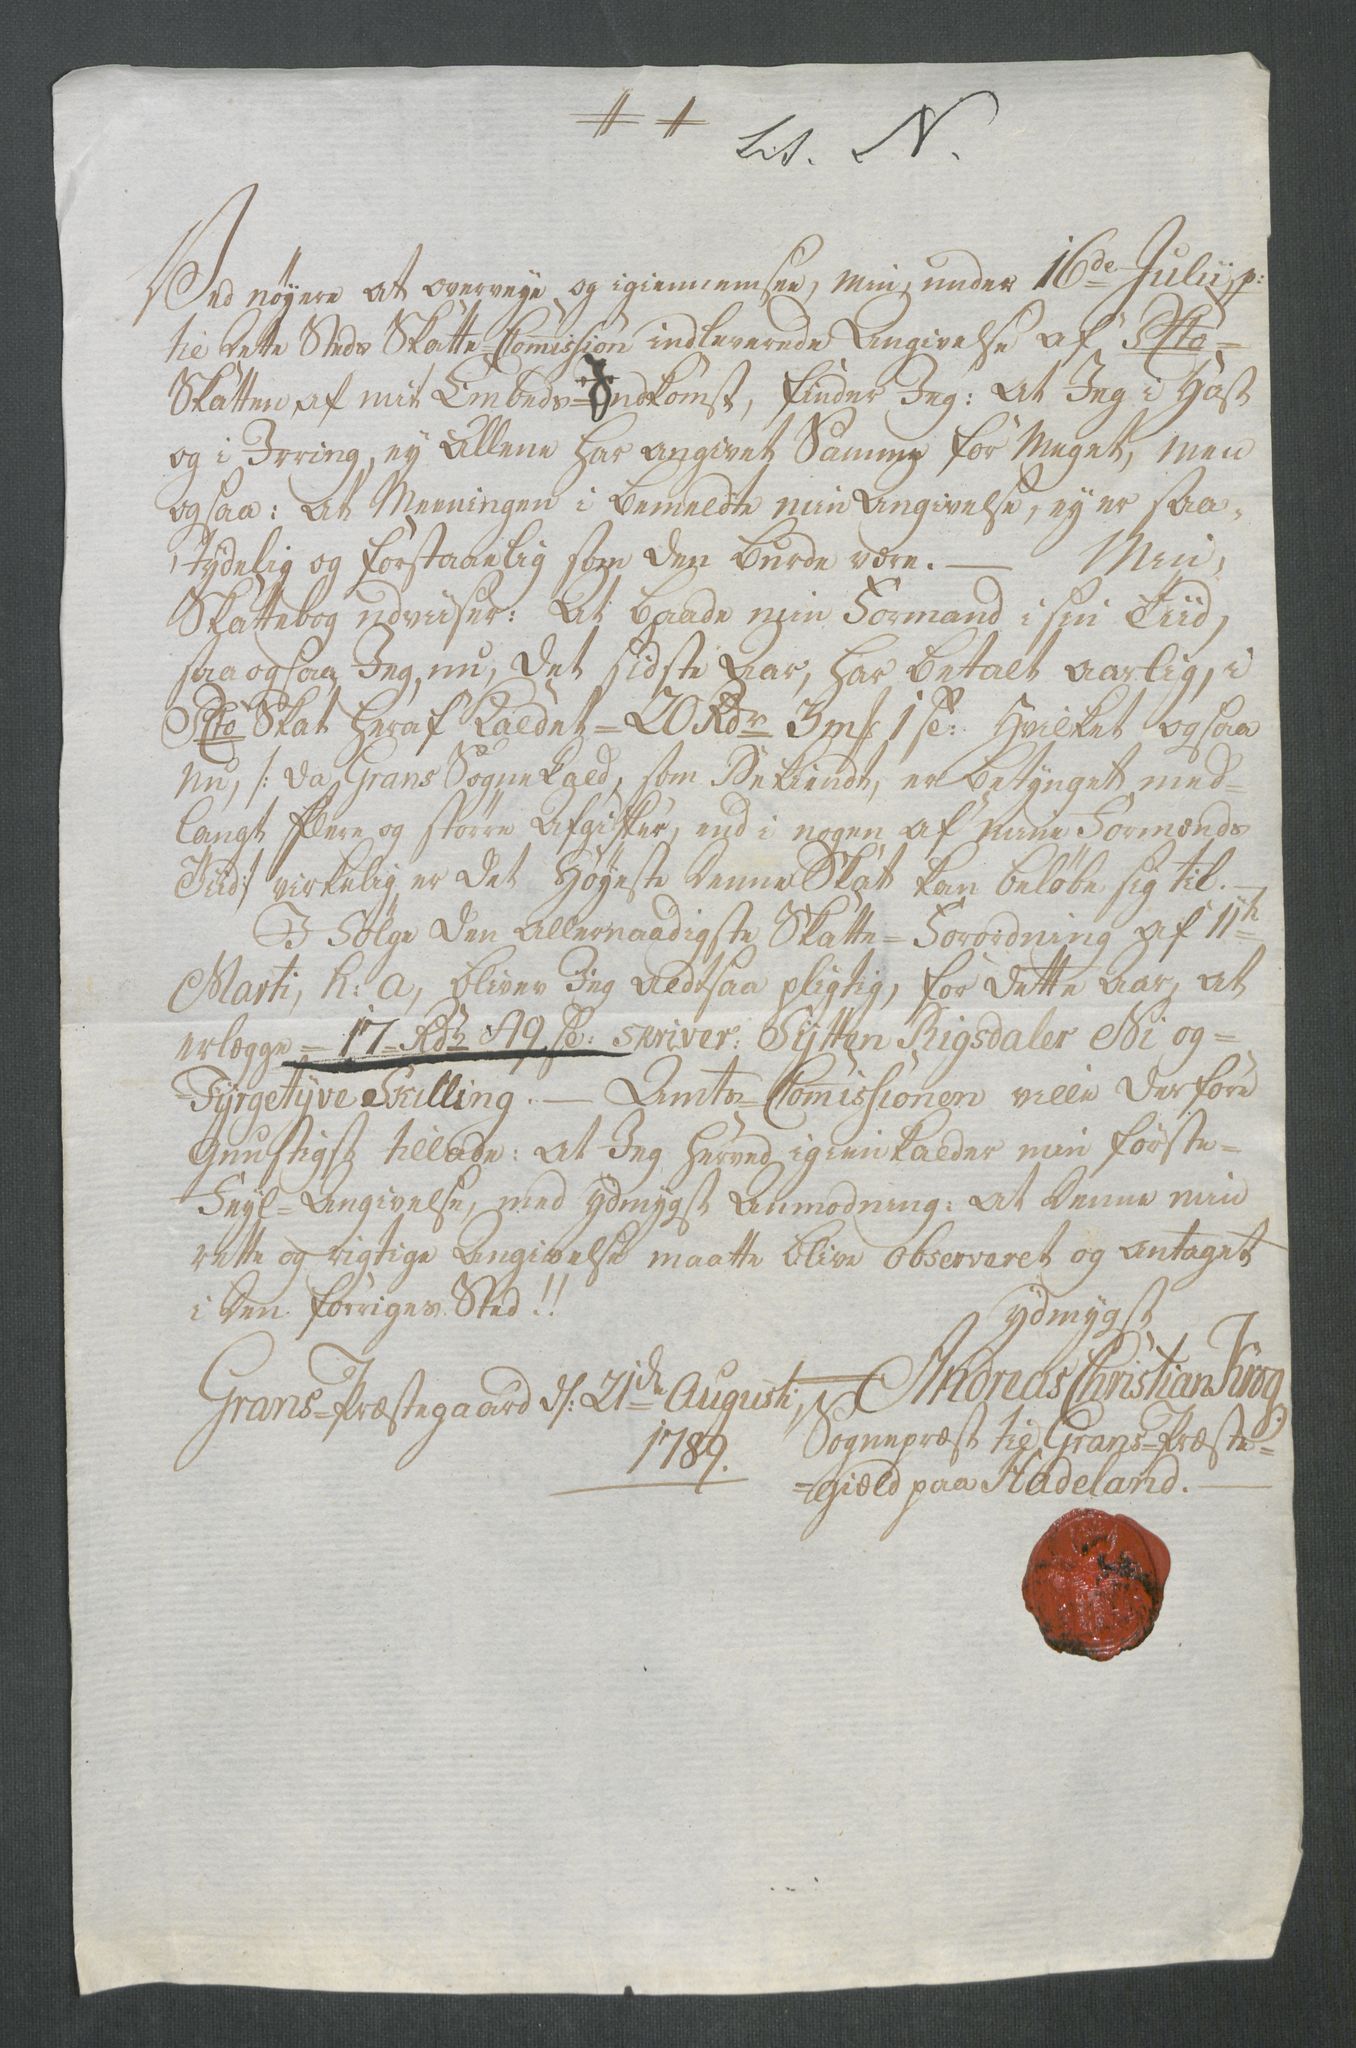 Lit. N.
Ved nöyere at overveye og igiennemsee, min, under 16de Julii, p:
til dette Steds Skatte=Comission indleverede Angivelse af Pcto=
Skatten, af mit Embeds=Indkomst, finder Jeg: at Jeg i Hast
og i Irring, ey allene har angivet Samme for meget, men
ogsaa: at Meeningen i bemeldte min Angivelse, ey er saa,
tydelig og forstaaelig som den burde være. — Min,
Skattebog udviiser: at baade min Formand i sin Tiid,
saa ogsaa Jeg, nu, det sidste Aar, har betalt aarlig, i
Pcto Skat heraf Kaldet = 20 Rdr 3 mk 1 sz: hvilket ogsaa
nu, /: da Grans Sognekald, som Bekiendt, er betynget med=
langt flere og större Afgifter, end i nogen af mine Formænds
Tiid :/ virkelig er det Höyeste denne Skat kan belöbe sig til. —
I Fölge den allernaadigste Skatte=Forordning af 11te
Marti, h: a, bliver Jeg altsaa pligtig, for dette Aar, at
erlegge = 17 = Rdr 49 sz: skriver: Sytten Rigsdaler Ni og=
=Fyrgetyve Skilling. — Amts=Comissionen ville derfore
gunstigst tillade: at Jeg herved igienkalder min förste=
Feyl=Angivelse, med ydmygst Anmodning: at denne min
rette og rigtige Angivelse maatte blive observeret og antaget
i den forriges Sted!!
ydmygst
Grans=Præstegaard d: 21de Augusti,
1789.
Andreas Christian Krog
Sognepræst til Grans=Præste=
=gield paa Hadeland. —